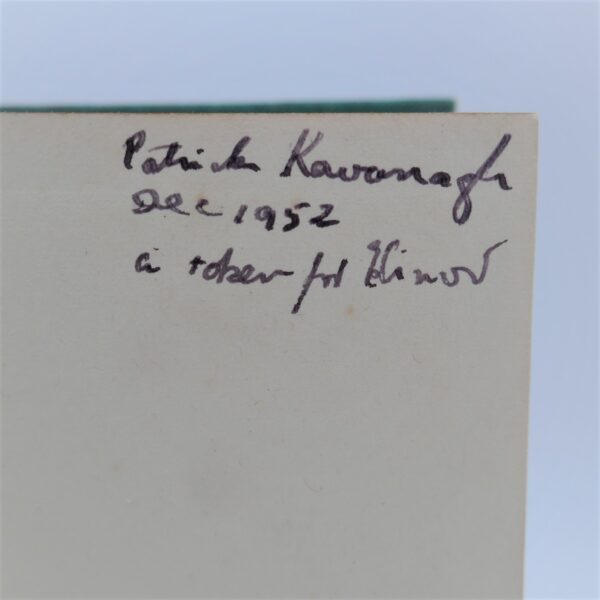 Patrick Kavanagh
Dec 1952
a token for Elinor